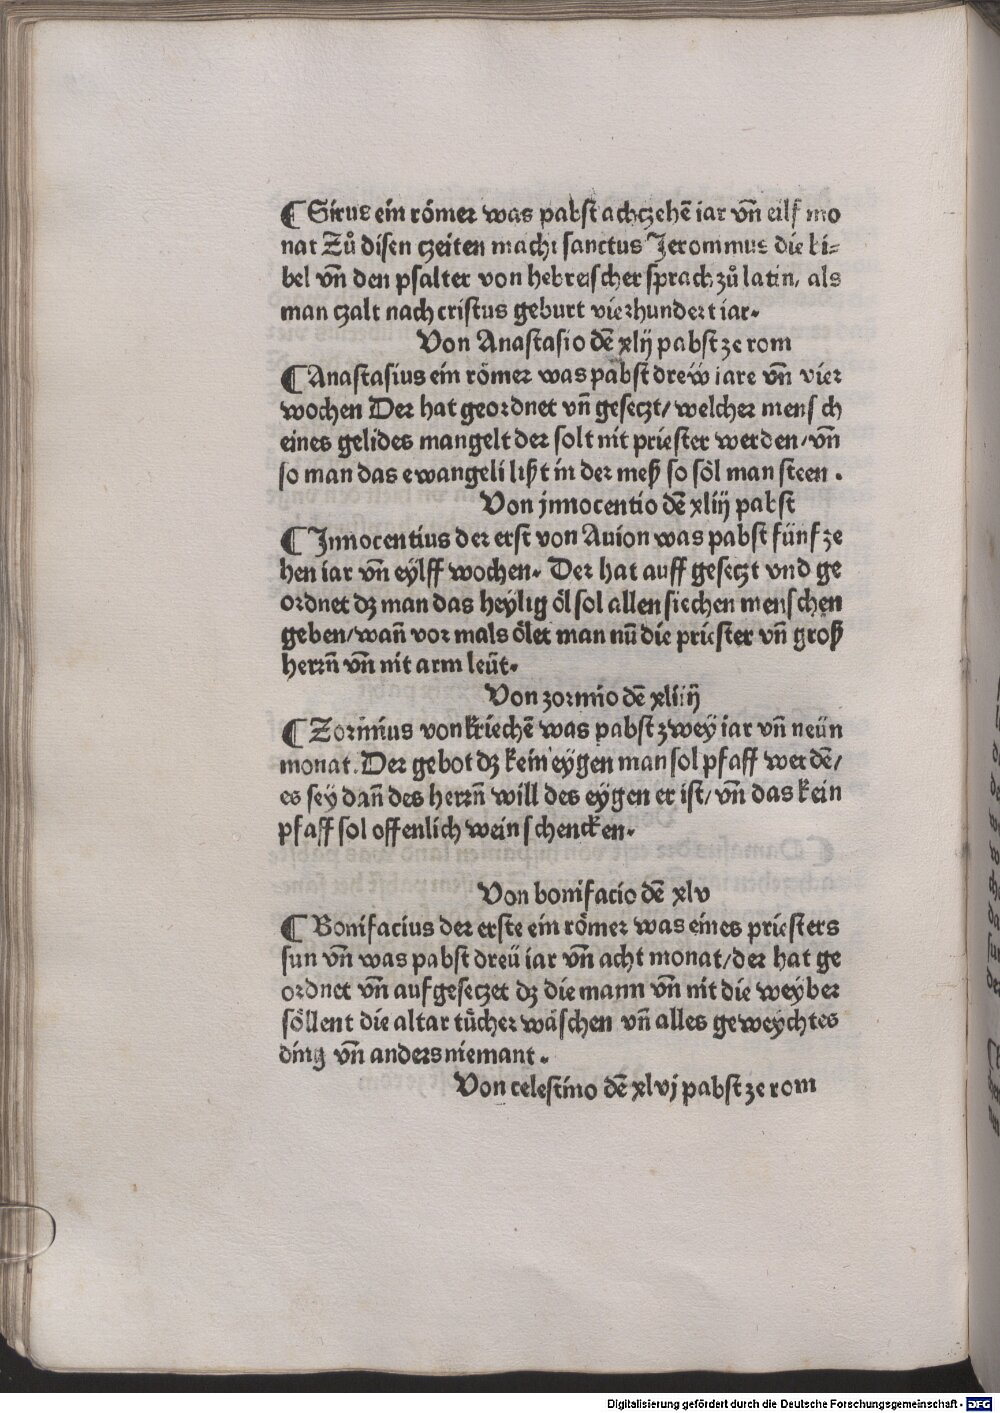 ¶ Sirus ein römer was pabst achczehē iar vn̄ eilf mo
nat Zů disen czeiten macht sanctus Jeronimus die bi⸗
bel vn̄ den psalter von hebreischer sprach zů latin, als
man czalt nach cristus geburt vierhundert iar.
Von Anastasio dē xlij pabst ze rom
¶ Anastasius ein römer was pabst drew iare vn̄ vier
wochen Der hat geordnet vn̄ geseczt/ welcher mensch
eines gelides mangelt der solt nit priester werden/ vn̄
so man das ewangeli lißt in der meß so söl man steen .
Von jnnocentio dē xliij pabst
¶ Jnnocentius der erst von Auion was pabst fünfze
hen iar vn̄ eylff wochen. Der hat auff geseczt vnd ge
ordnet dz man das heylig öl sol allen siechen menschen
geben/ wan̄ vor mals ölet man nū die priester vn̄ groß
herrn̄ vn̄ nit arm leüt.
Von zormio dē xliiij
¶ Zorimius von kriechē was pabst zwey iar vn̄ neün
monat. Der gebot dz kein eygen man sol pfaff werdē/
es sey dan̄ des herrn̄ will des eygen er ist/ vn̄ das kein
pfaff sol offenlich wein schencken.
Von bonifacio dē xlv
¶ Bonifacius der erste ein römer was eines priesters
sun vn̄ was pabst dreü iar vn̄ acht monat/ der hat ge
ordnet vn̄ aufgeseczet dz die mann vn̄ nit die weyber
söllent die altar tücher wäschen vn̄ alles geweychtes
ding vn̄ anders niemant .
Von celestino dē xlvj pabst ze rom
Digitalisierung gefördert durch die Deutsche Forschungsgemeinschaft - DFG